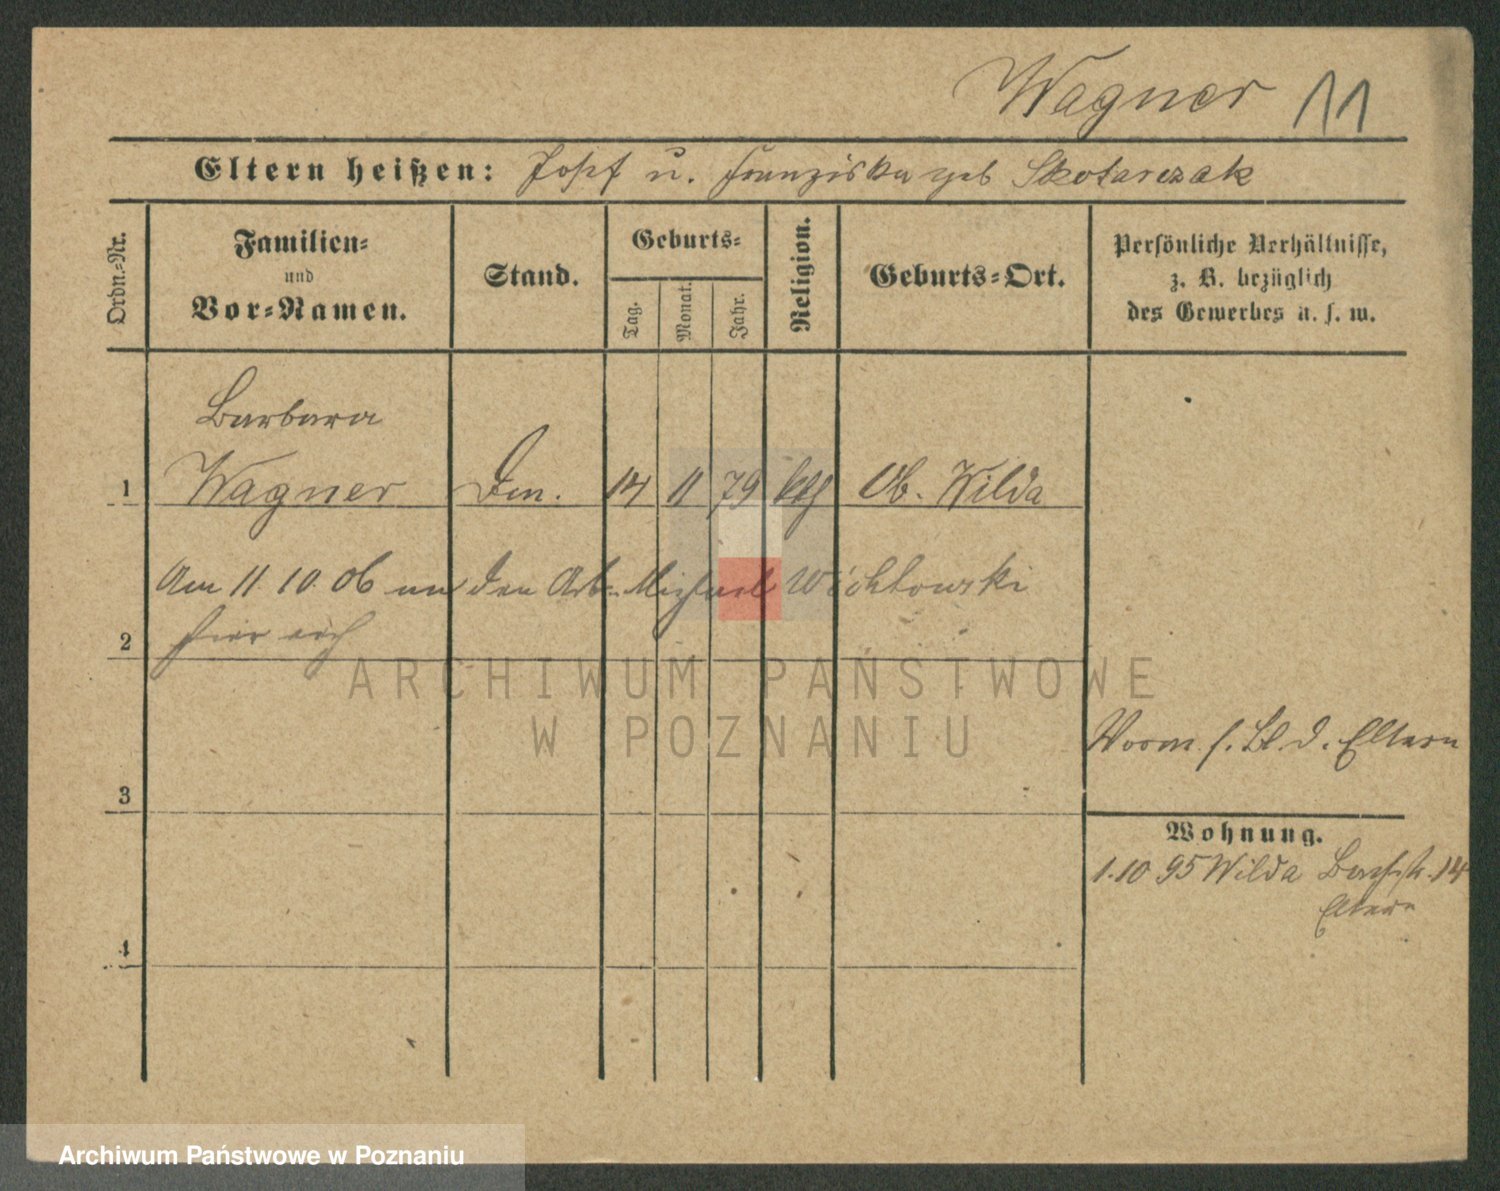 Wagner 11
Eltern heißen: Josef u. Franziska geb Skotarczak
Ordn.-Nr.
Familien-
und
Vor-Namen.
Stand.
Geburts-
Tag.
Monat.
Jahr.
Religion.
Geburts-Ort.
Persönliche Verhältnisse,
z. B. bezüglich
des Gewerbes u. s. w.
Barbara
1 Wagner 14 11 79 kth Ob. Wilda
Am 11.10.06 an den Arb. Michael Wichtowski
2 hier
ARCHIWUM PAŃSTWOWE
W POZNANIU
Vorm. s. Bl. d. Eltern
3
Wohnung.
1.10 95 Wilda Bachstr. 14
Eltern
4
Archiwum Państwowe w Poznaniu